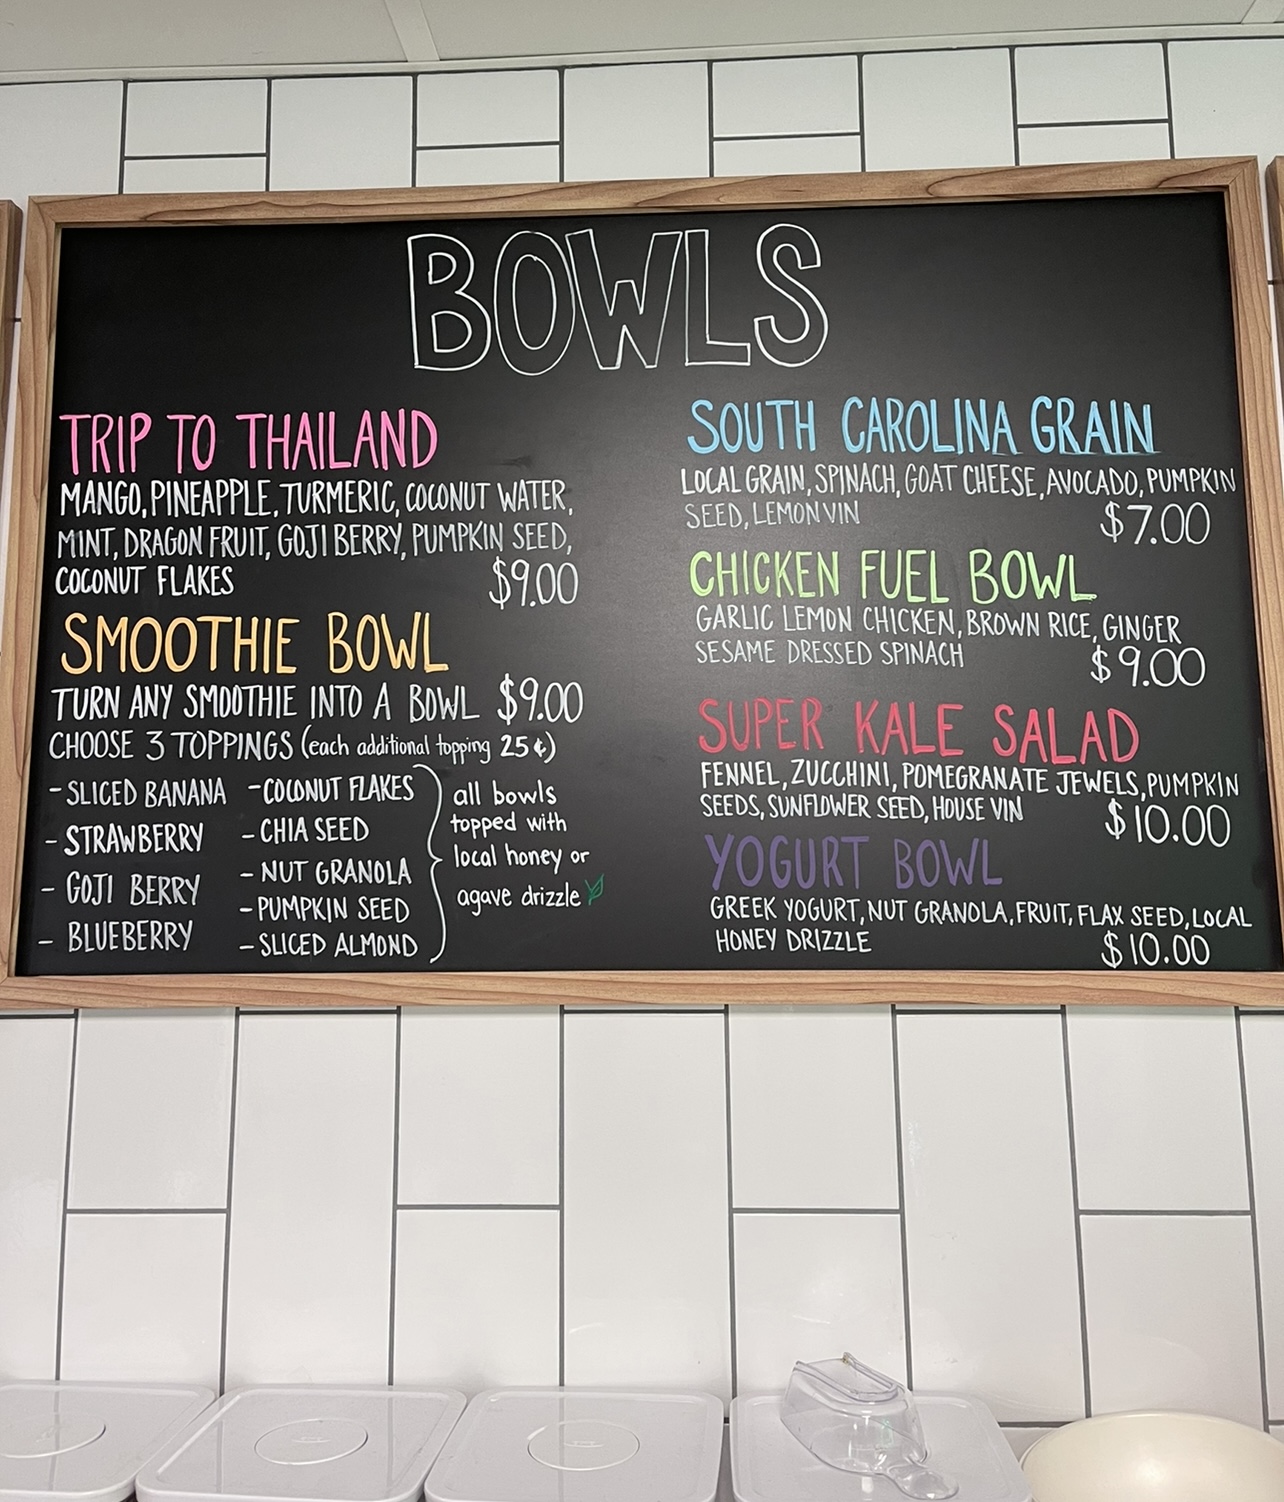 BOWLS
TRIP TO THAILAND
MANGO, PINEAPPLE, TURMERIC, COCONUT WATER,
MINT, DRAGON FRUIT, GOJI BERRY, PUMPKIN SEED,
COCONUT FLAKES $9.00
SMOOTHIE BOWL
TURN ANY SMOOTHIE INTO A BOWL $9.00
CHOOSE 3 TOPPINGS (each additional topping 25¢)
- SLICED BANANA
- STRAWBERRY
- GOJI BERRY
- BLUEBERRY
- COCONUT FLAKES
- CHIA SEED
- NUT GRANOLA
- PUMPKIN SEED
- SLICED ALMOND
all bowls
topped with
local honey or
agave drizzle
SOUTH CAROLINA GRAIN
LOCAL GRAIN, SPINACH, GOAT CHEESE, AVOCADO, PUMPKIN
SEED, LEMON VIN $7.00
CHICKEN FUEL BOWL
GARLIC LEMON CHICKEN, BROWN RICE, GINGER
SESAME DRESSED SPINACH $9.00
SUPER KALE SALAD
FENNEL, ZUCCHINI, POMEGRANATE JEWELS, PUMPKIN
SEEDS, SUNFLOWER SEED, HOUSE VIN $10.00
YOGURT BOWL
GREEK YOGURT, NUT GRANOLA, FRUIT, FLAX SEED, LOCAL
HONEY DRIZZLE $10.00